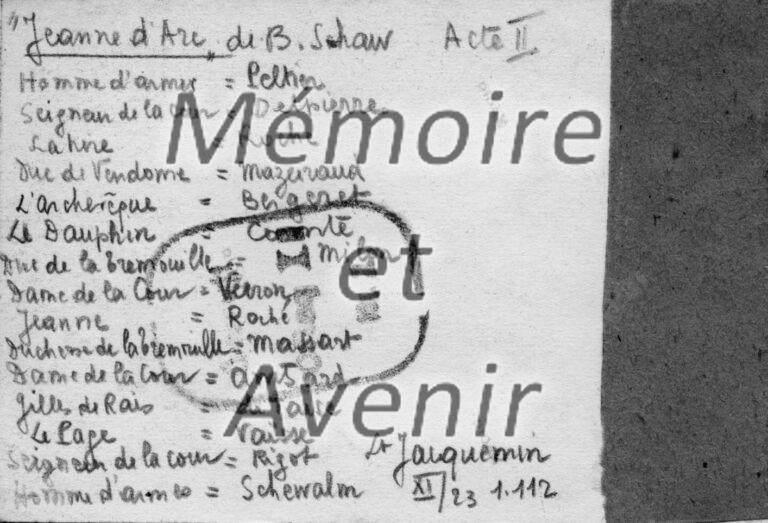 "Jeanne d'Arc" de B. Schaw Acte II
Homme d'armes = Peltier
Seigneur de la cour = Delpierre
Lahire = Roche
Duc de Vendome = Mazeiraud
L'archevêque = Bergeret
Le Dauphin = Comté
Duc de la Tremouille = Milon
Dame de la Cour = Verron
Jeanne = Roche
Duchesse de la Tremouille = Massart
Dame de la Cour =
Gilles de Rais =
Le Page = Vausse
Seigneur de la cour = Rigot
Homme d'armes = Schewalm
Lt Jacquemin
XI/23 1.112
Mémoire
et
Avenir